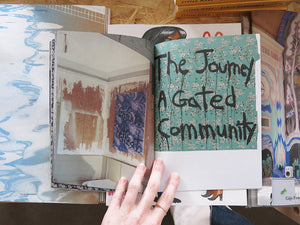 The Journey
A Gated
Community